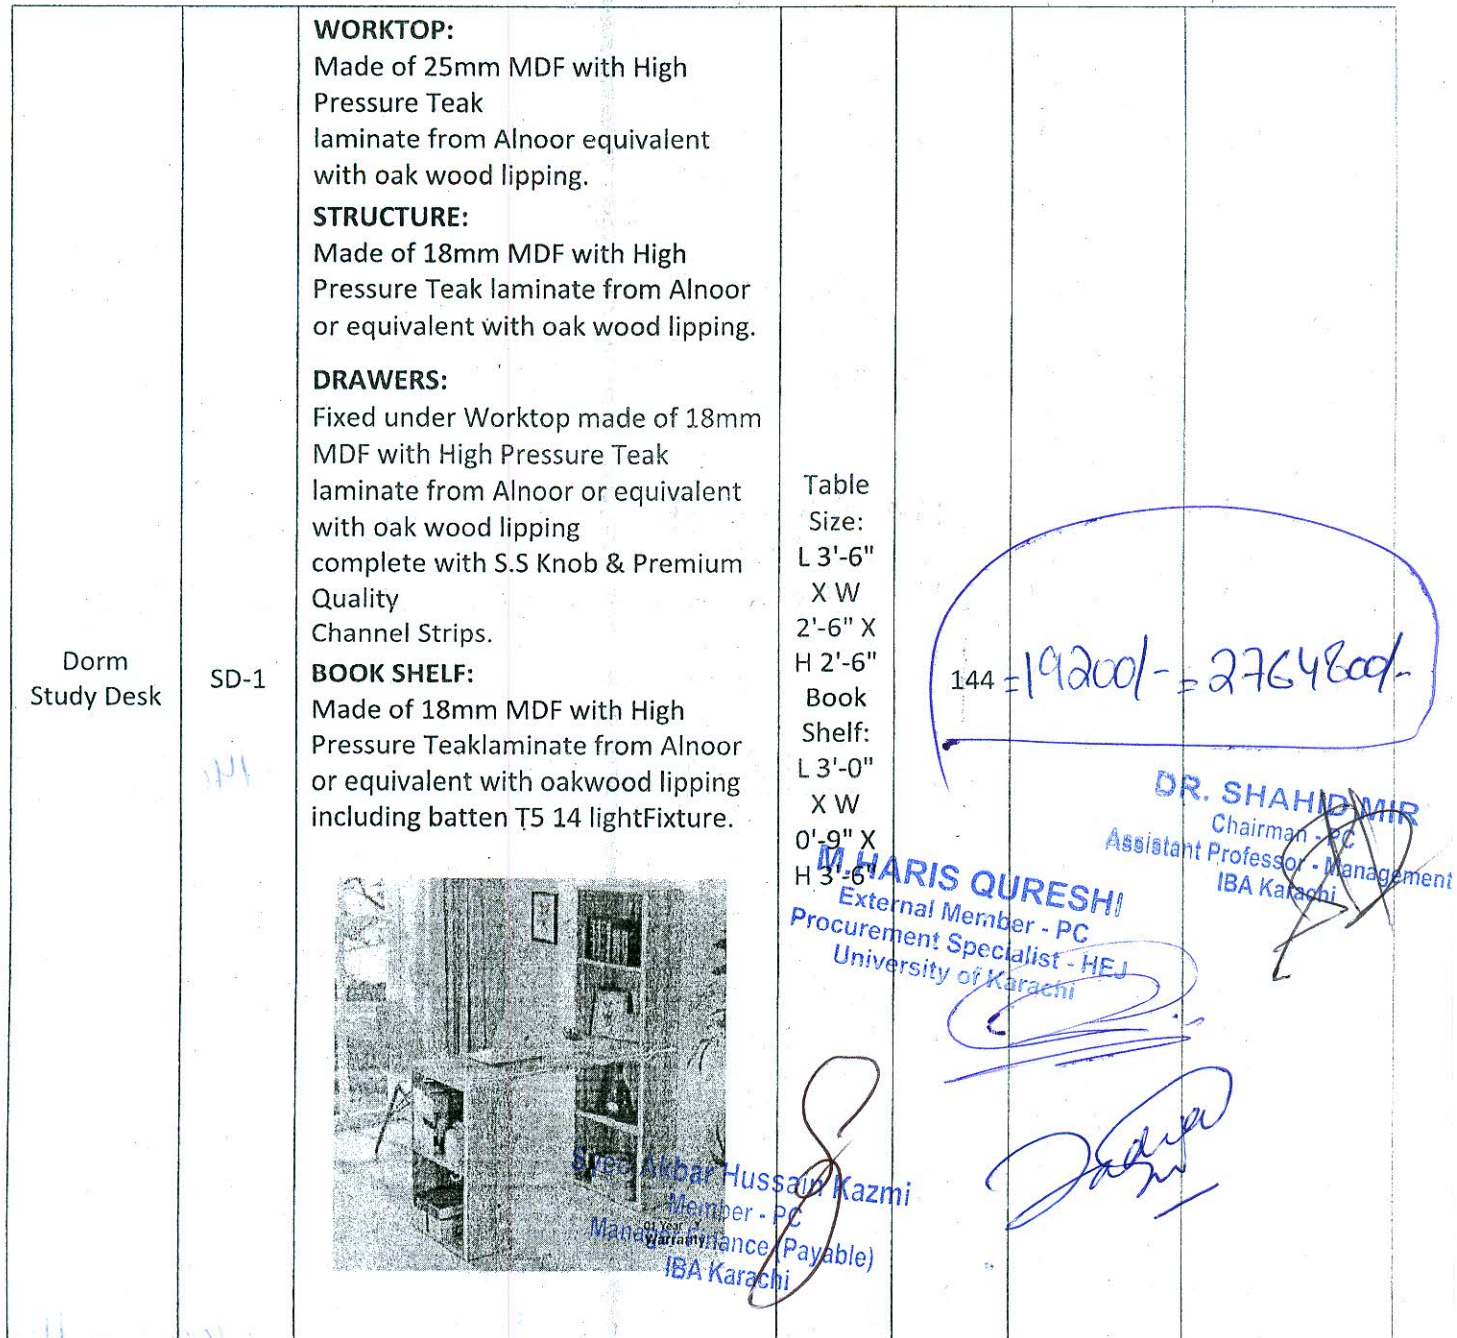 Dorm
Study Desk
SD-1
WORKTOP:
Made of 25mm MDF with High
Pressure Teak
laminate from Alnoor equivalent
with oak wood lipping.
STRUCTURE:
Made of 18mm MDF with High
Pressure Teak laminate from Alnoor
or equivalent with oak wood lipping.
DRAWERS:
Fixed under Worktop made of 18mm
MDF with High Pressure Teak
laminate from Alnoor or equivalent
with oak wood lipping
complete with S.S Knob & Premium
Quality
Channel Strips.
BOOK SHELF:
Made of 18mm MDF with High
Pressure Teaklaminate from Alnoor
or equivalent with oakwood lipping
including batten T5 14 lightFixture.
01 Year
Warranty
Table
Size:
L 3'-6"
X W
2'-6" X
H 2'-6"
Book
Shelf:
L 3'-0"
X W
0'-9" X
H 3'-6"
144 =19200/- = 2764800/-
DR. SHAHID MIR
Chairman - PC
Assistant Professor - Management
IBA Karachi
M.HARIS QURESHI
External Member - PC
Procurement Specialist - HEJ
University of Karachi
Syed Akbar Hussain Kazmi
Member - PC
Manager Finance (Payable)
IBA Karachi